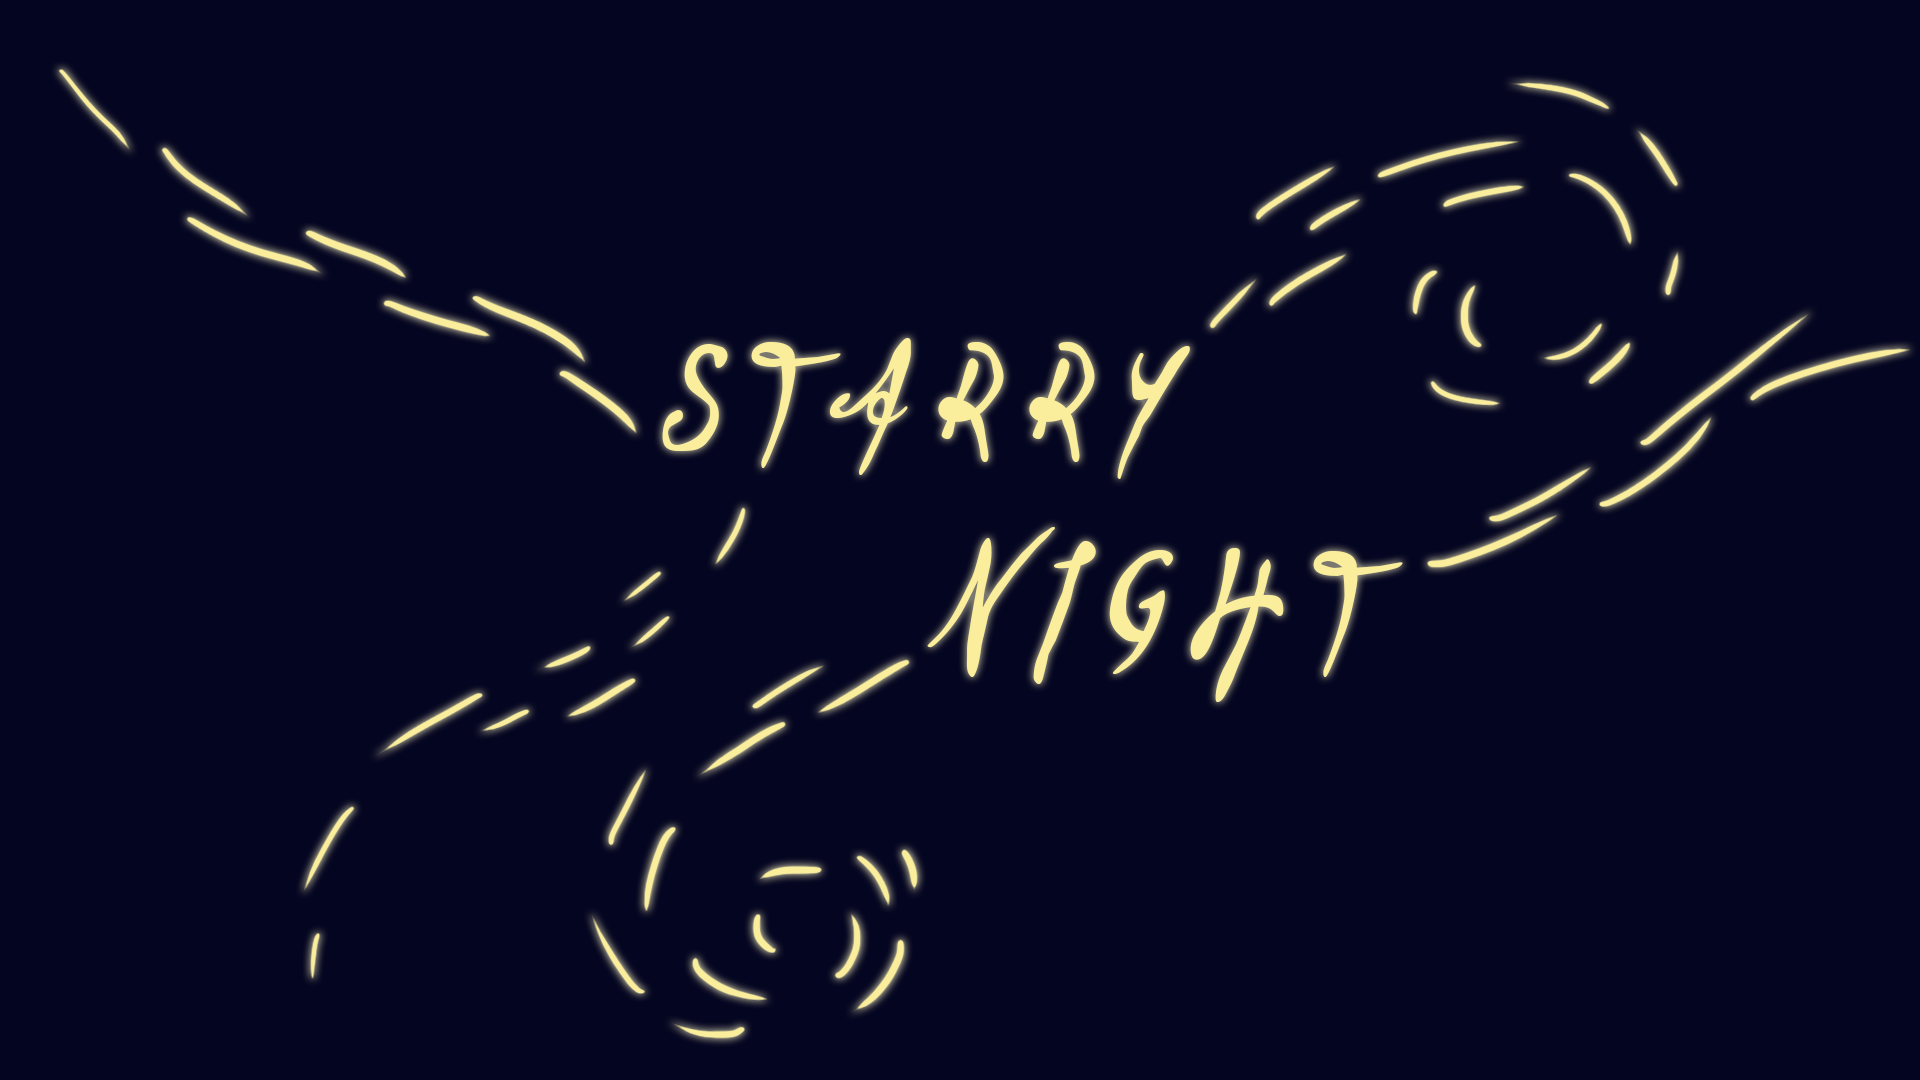 STARRY
NIGHT